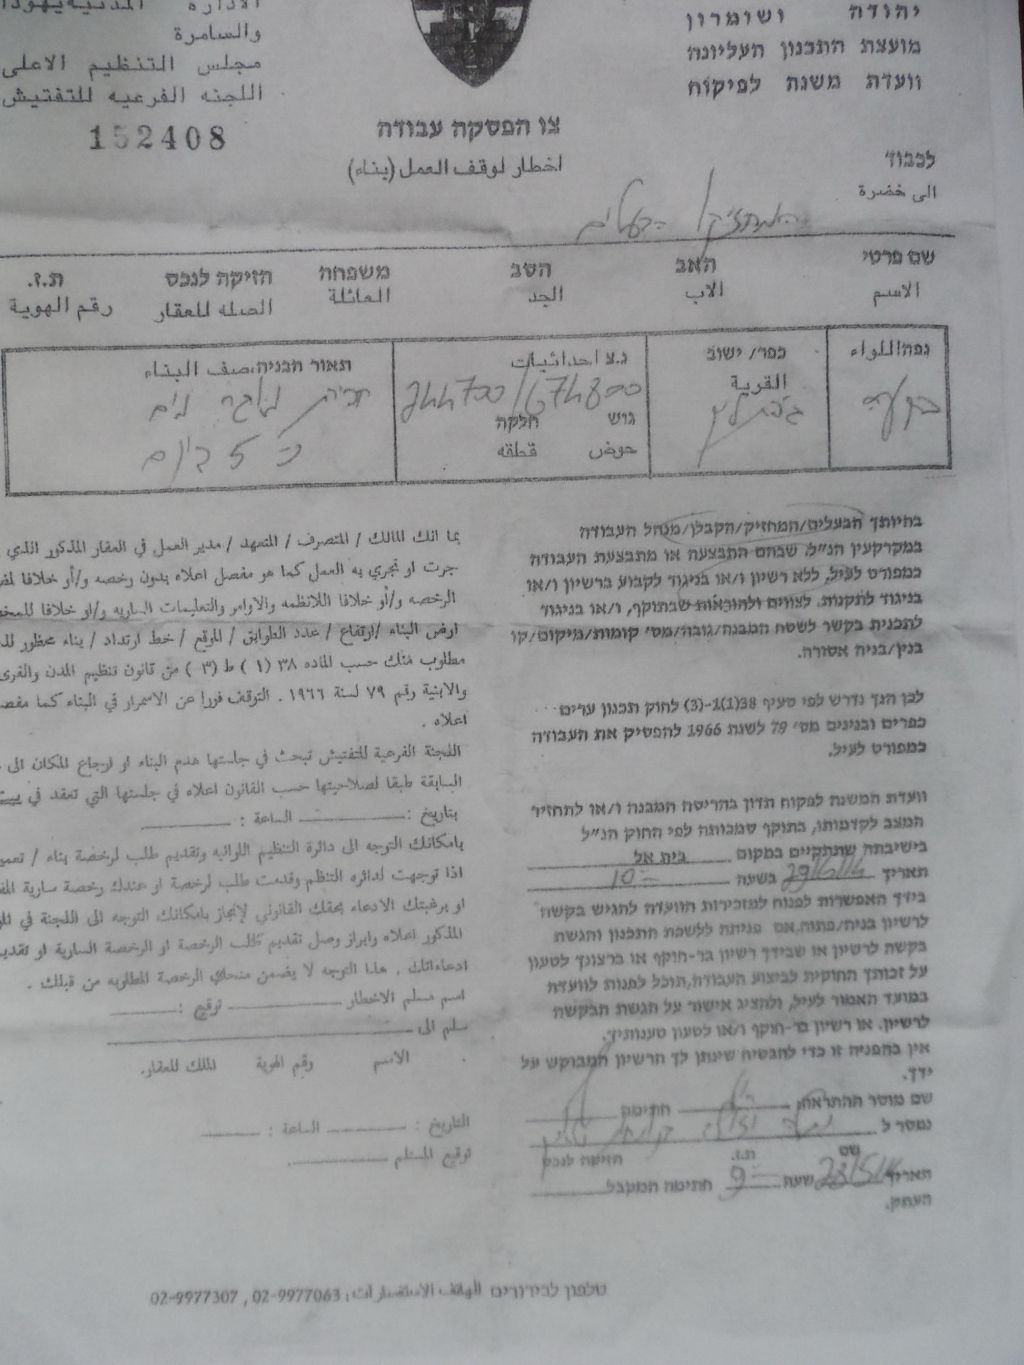 יהודה ושומרון
מועצת התכנון העליונה
וועדת משנה לפיקוח
الادارة المدنية يهودا
والسامرة
مجلس التنظيم الاعلى
اللجنه الفرعيه للتفتيش
152408
צו הפסקה עבודה
اخطار لوقف العمل (بناء)
לכבוד
الى حضرة
המחזיק / הבעלים
שם פרטי האב הסב משפחה חזיקה לנכס ת.ז.
الاسم الاب الجد العائلة الصله للعقار رقم الهوية
נפה/اللواء כפר/ ישוב נ.צ احداثيات תאור הבניה/صف البناء
القرية
בקעה 244700/674800
גוש חלקה
حوض قطعه
בהיותך הבעלים/המחזיק/הקבלן/מנהל העבודה
במקרקעין הנ"ל, שבהם התבצעה או מתבצעת העבודה
כמפורט לעיל, ללא רשיון ו/או בניגוד לקבוע ברשיון ו/או
בניגוד לתקנות. לצווים ולהוראות שבתוקף, ו/או בניגוד
לתכנית בקשר לשטח המבנה/גובה/מס' קומות/מיקום/קו
בנין/בניה אסורה.
לכן הנך נדרש לפי סעיף 38(1)-(3) לחוק תכנון ערים
כפרים ובנינים מס' 79 לשנת 1966 להפסיק את העבודה
כמפורט לעיל.
וועדת המשנה לפקוח תדון בהריסת המבנה ו/או להחזיר
המצב לקדמותו, בתוקף סמכותה לפי החוק הנ"ל
בישיבתה שתתקיים במקום בית אל
תאריך בשעה 10
בידך האפשרות לפנות למזכירות הוועדה להגיש בקשה
לרשיון בניה/פתוח, אם פנית ללשכת התכנון והגשת
בקשה לרשיון או שבידך רשיון בר-תוקף או ברצונך לטעון
על זכותך החוקית לביצוע העבודה, תוכל לפנות לוועדה
במועד האמור לעיל, ולהציג אישור על הגשת הבקשה
לרשיון. או רשיון בר-תוקף ו/או לטעון טענותיך.
אין בהפניה זו כדי להבטיח שינתן לך הרשיון המבוקש על
ידך.
שם מוסר ההתראה חתימה
נמסר ל
שם ת.ז. חזיקה לנכס
תאריך שעה 9 חתימת המקבל
העתק.
بما انك المالك / المتصرف / المتعهد / مدير العمل في العقار المذكور الذي
جرت او تجري به العمل كما هو مفصل اعلاه بدون رخصه و/أو خلافا
الرخصه و/أو خلافا للانظمه والاوامر والتعليمات الساريه و/او خلافا
ارض البناء /ارتفاع / عدد الطوابق / الموقع / خط ارتداد / بناء محظور
مطلوب منك حسب الماده ٣٨ (١) ط (٣) من قانون تنظيم المدن والقرى
والابنية رقم ٧٩ لسنة ١٩٦٦ . التوقف فورا عن الاستمرار في البناء كما
اعلاه .
اللجنة الفرعية للتفتيش تبحث في جلستها هدم البناء او ارجاع المكان الى
السابقة طبقا لصلاحيتها حسب القانون اعلاه في جلستها التي تعقد في
بتاريخ : الساعة :
بامكانك التوجه الى دائرة التنظيم اللوائيه وتقديم طلب لرخصة بناء /
اذا توجهت لدائره التنظم وقدمت طلب لرخصة او عندك رخصة سارية
او برغبتك الادعاء بحقك القانوني لإنجاز بامكانك التوجه الى اللجنة في
المذكور اعلاه وابراز وصل تقديم طلب الرخصة او الرخصة السارية او
ادعاءاتك . هذا التوجه لا يضمن منحك الرخصة المطلوبه من قبلك .
اسم مسلم الاخطار توقيع :
سلم الى
الاسم رقم الهوية المالك للعقار.
التاريخ : الساعة :
توقيع المستلم
טלפון לבירורים الهاتف الاستفسارات: 02-9977063 , 02-9977307